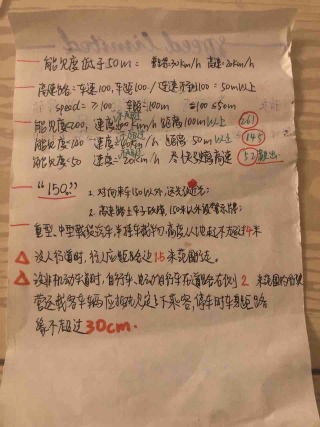 speed limited
一 能见度低于50m: 普路:30km/h 高速:20km/h
高速路: 车速100,车距100 / 车速不到100: 50m以上
speed = ≥100 车距=100m ≤100 ≤50m
能见度<200, 速度=60km/h 距离100m以上 (261)
能见度<100 速度=40km/h 距离50m以上 (145)
能见度<50 速度=20km/h 尽快驶离高速 (52驶出)
一 "150"
1. 对向来车150以外,远光改近光;
2. 高速路上车子故障,150米以外设警示牌;
一 重型、中型载货汽车,半挂车载物,高度从地起不超过4米
△ 没人行道时,行人应距路边1.5米范围行走。
△ 没非机动车道时,自行车、电动自行车在道路右侧2米范围内行驶
营运载客车辆应按规定上下乘客,停车时车身距路
缘不超过30cm.